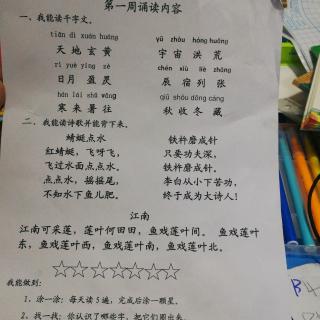 第一周诵读内容
一、我能读千字文。
tiān dì xuán huáng yǔ zhòu hóng huāng
天地玄黄 宇宙洪荒
rì yuè yíng zè chén xiù liè zhāng
日月盈昃 辰宿列张
hán lái shǔ wǎng qiū shōu dōng cáng
寒来暑往 秋收冬藏
二、我能读诗歌并能背下来。
蜻蜓点水 铁杵磨成针
红蜻蜓，飞呀飞， 只要功夫深，
飞过水面点点水。 铁杵磨成针。
点点水，摇摇尾， 李白从小下苦功，
不知水下鱼儿肥。 终于成为大诗人！
江南
江南可采莲，莲叶何田田，鱼戏莲叶间。 鱼戏莲叶
东，鱼戏莲叶西，鱼戏莲叶南，鱼戏莲叶北。
我能做到：
1、涂一涂：每天读5遍，完成后涂一颗星。
2、找一找：你认识了哪些字，把它们圈出来。